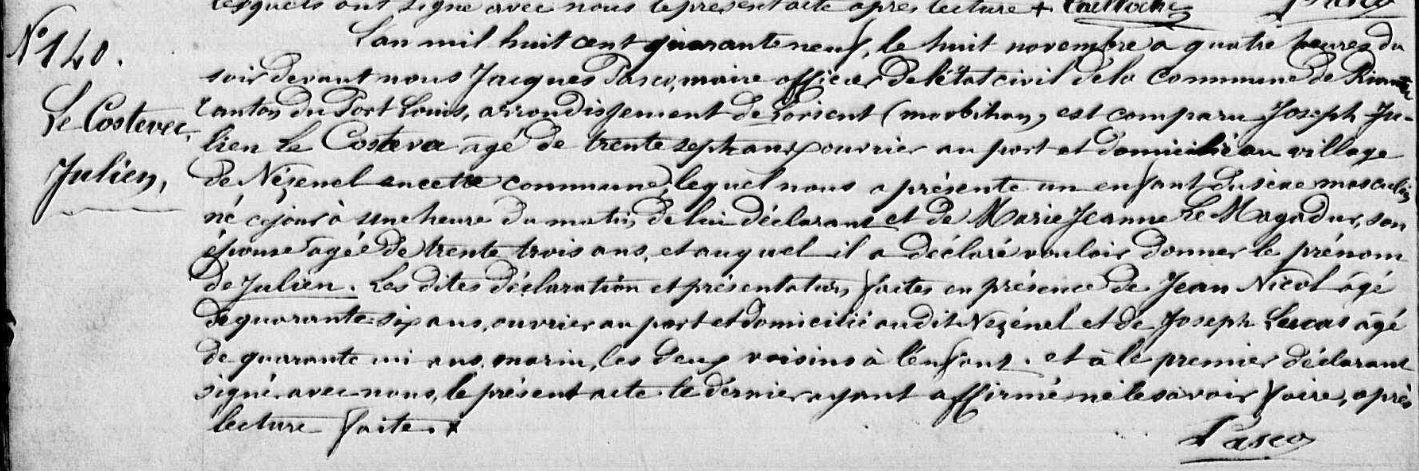 lesquels ont signé avec nous le présent acte après lecture +
N° 140.
Le Costevec,
Julien,
L'an mil huit cent quarante neuf, le huit novembre a quatre heures du
soir devant nous Jacques Pasco, maire officier de l'état civil de la commune de
canton du Port Louis, arrondissement de Lorient (morbihan, est comparu Joseph Ju-
lien Le Costevec âgé de trente sept ans, ouvrier au port et domicilié au village
de Nézenel en cette commune, lequel nous a présenté un enfant du sexe masculin
né ce jour à une heure du matin, de lui déclarant et de Marie Jeanne Le Magadur, son
épouse âgée de trente trois ans, et auquel il a déclaré vouloir donner le prénom
de Julien. Les dites déclaration et présentation, faites en présence de Jean Nicol âgé
de quarante-six ans, ouvrier au port et domicilié audit Nezénel et de Joseph Lucas âgé
de quarante un ans, marin, les deux voisins à l'enfant. et à le premier déclarant
signé avec nous, le présent acte le dernier ayant affirmé ne le savoir faire, après
lecture faite. +
Pasco